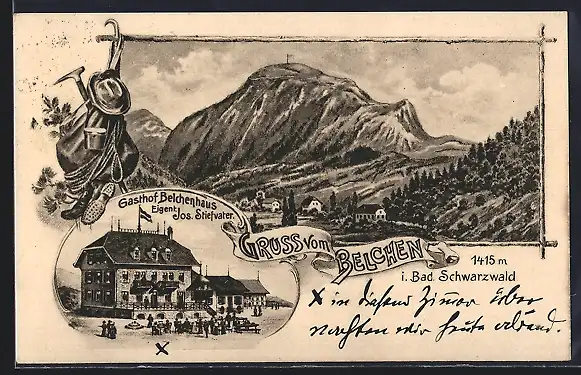 Gasthof Belchenhaus
Eigent.
Jos. Stiefvater.
GRUSS vom
BELCHEN
1415 m
i. Bad. Schwarzwald
X in diesem Zimmer über
nachten wir heute abend.
X